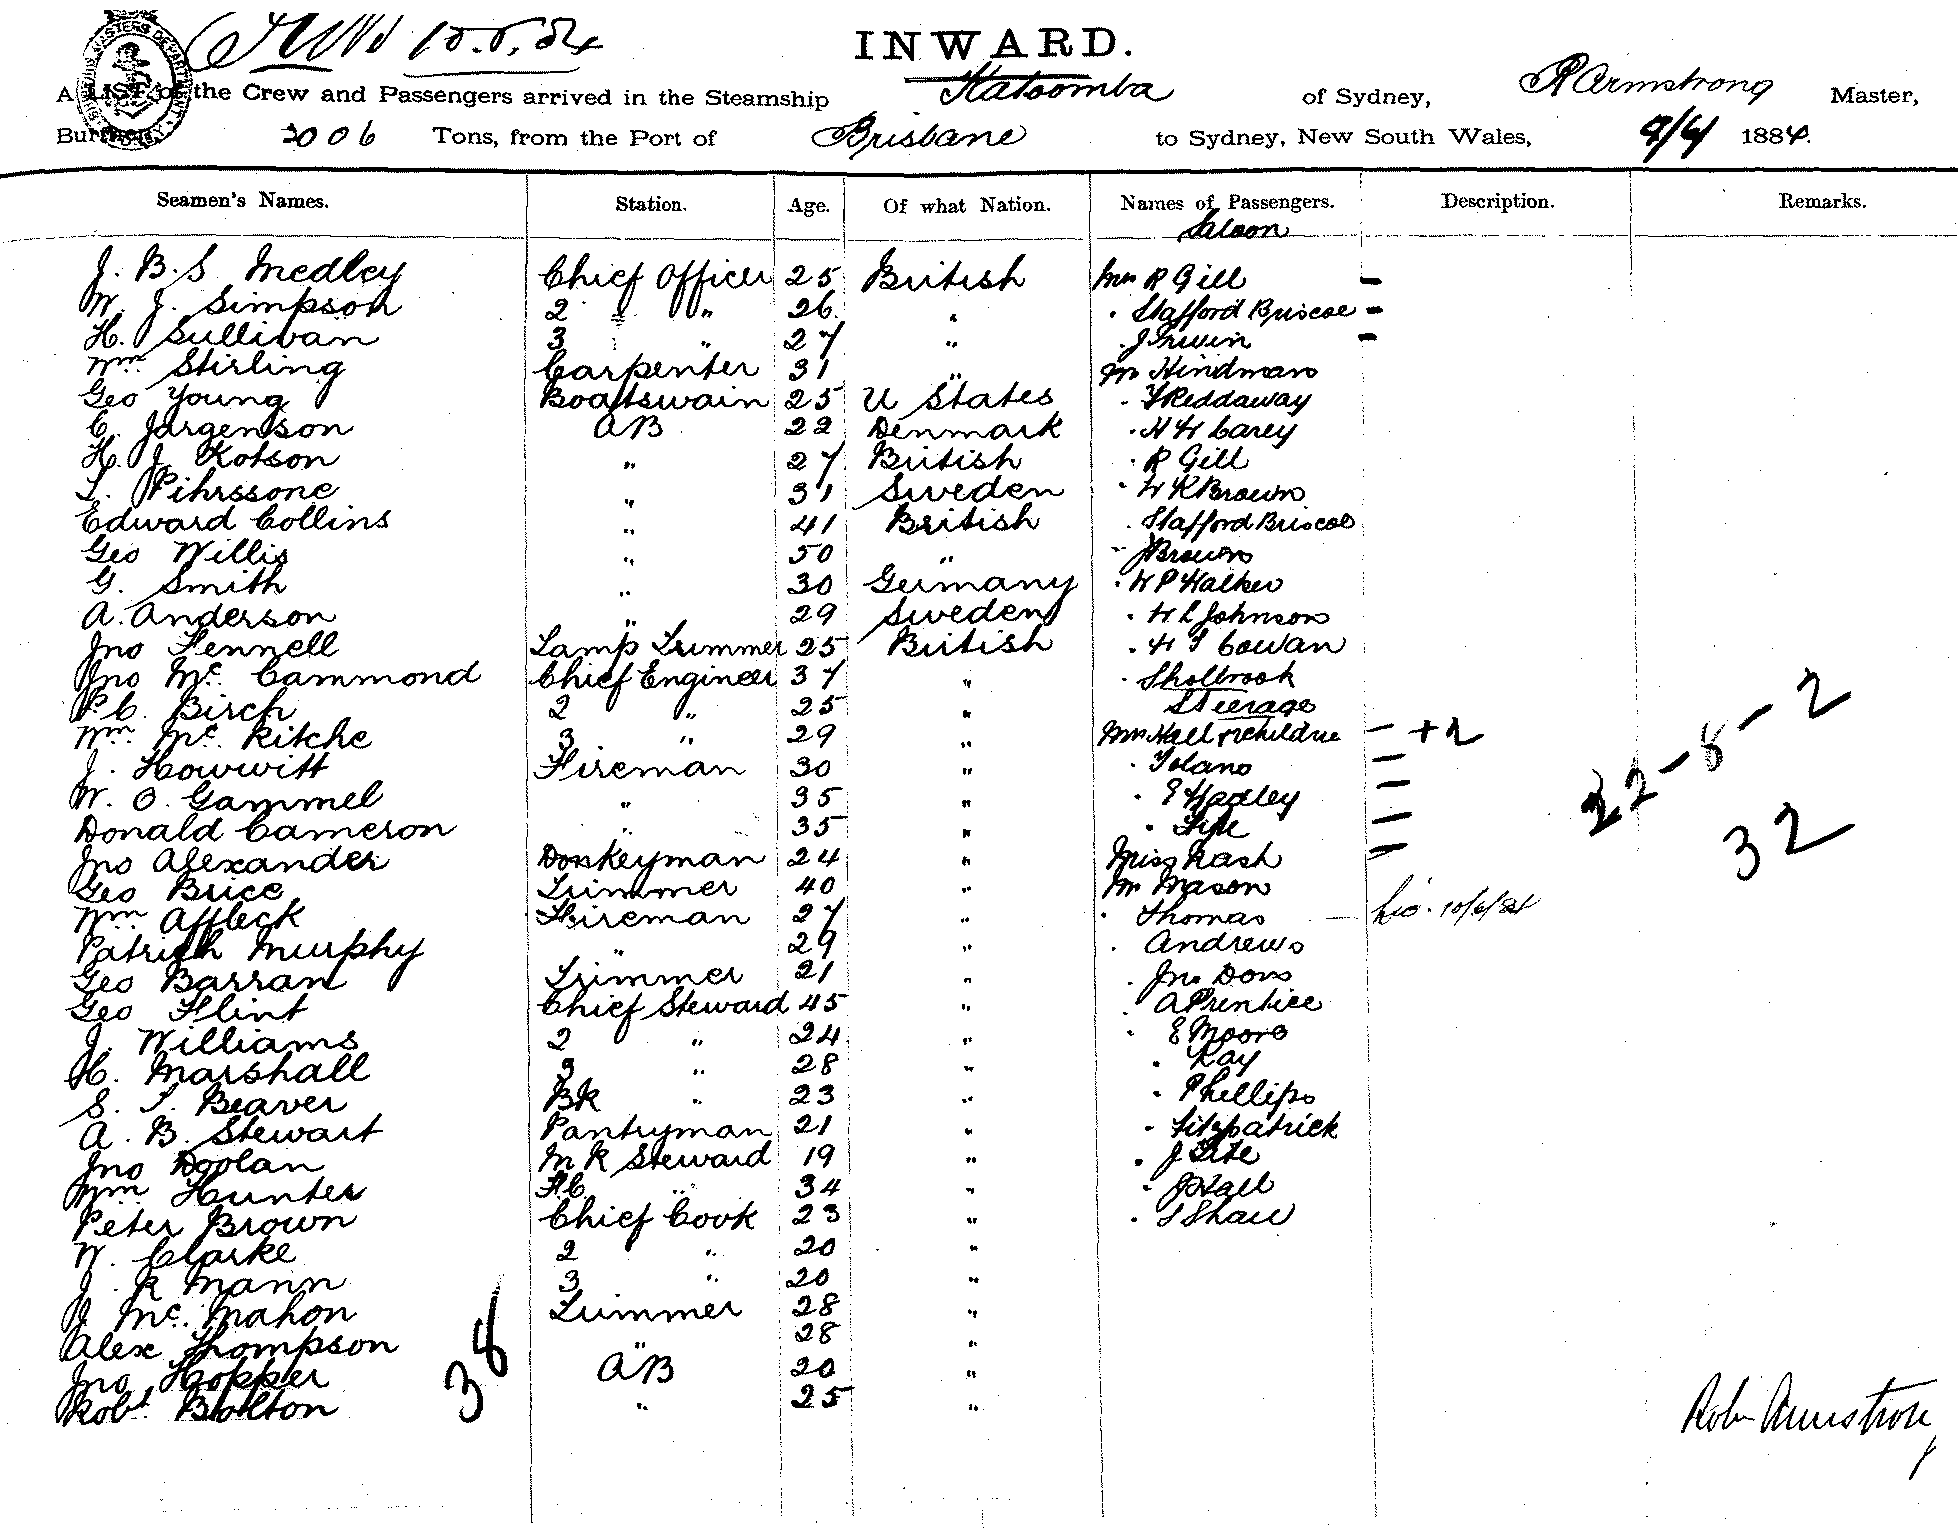 INWARD.
A LIST of the Crew and Passengers arrived in the Steamship Katoomba of Sydney, R Armstrong Master,
Burthen, 2006 Tons, from the Port of Brisbane to Sydney, New South Wales, 9/6/ 1884.
Seamen's Names. Station. Age. Of what Nation. Names of Passengers. Description. Remarks.
Saloon
J. B. S Medley Chief Officer 25 British Mrs R Gill -
W. J. Simpson 2 " " 26 " " Stafford Briscoe -
H. Sullivan 3 " 27 " " J Irwin -
Wm Stirling Carpenter 31 " Mr Hindman
Geo Young Boatswain 25 U States " Reddaway
C. Jorgenson AB 22 Denmark " H W Carey
H. J. Rotson " 27 British " R Gill
L. Pihrssone " 31 Sweden " W K Brown
Edward Collins " 41 British " Stafford Briscoe
Geo Willis " 50 " " J Brown
G. Smith " 30 Germany " W P Walker
A. Anderson " 29 Sweden " W L Johnson
Jno Fennell Lamp Trimmer 25 British " W T Cowan
Jno Mc Cammond Chief Engineer 37 " " Holbrook
P C. Birch 2 " 25 " Steerage
Wm Mc Ritche 3 " 29 " Mrs Hall & 2 children - + 2
J. Howwitt Fireman 30 " " Tolano -
W. O. Gammel " 35 " " E Hadley -
Donald Cameron " 35 " " Fife -
Jno Alexander Donkeyman 24 " Miss Rash -
Geo Brice Trimmer 40 " Mr Mason
Wm Affleck Fireman 27 " " Thomas
Patrick Murphy " 29 " " Andrews
Geo Barran Trimmer 21 " " Jno Dons
Geo Flint Chief Steward 45 " " A Prentice
J. Williams 2 " 24 " " E Moore
H. Marshall 3 " 28 " " Ray
S. T. Beaver BK " 23 " " Phillips
A. B. Stewart Pantryman 21 " " Fitzpatrick
Jno Doolan M R Steward 19 " " J Tite
Wm Hunter F.C. " 34 " " J Hall
Peter Brown Chief Cook 23 " " T Shaw
W. Clarke 2 " 20 "
J. R Mann 3 " 20 "
J Mc. Mahon Trimmer 28 "
Alex Thompson " 28 "
Jno Hopper AB 20 "
Robt. Bolton " 25 "
38
22-8-2
32
Robt Armstrong